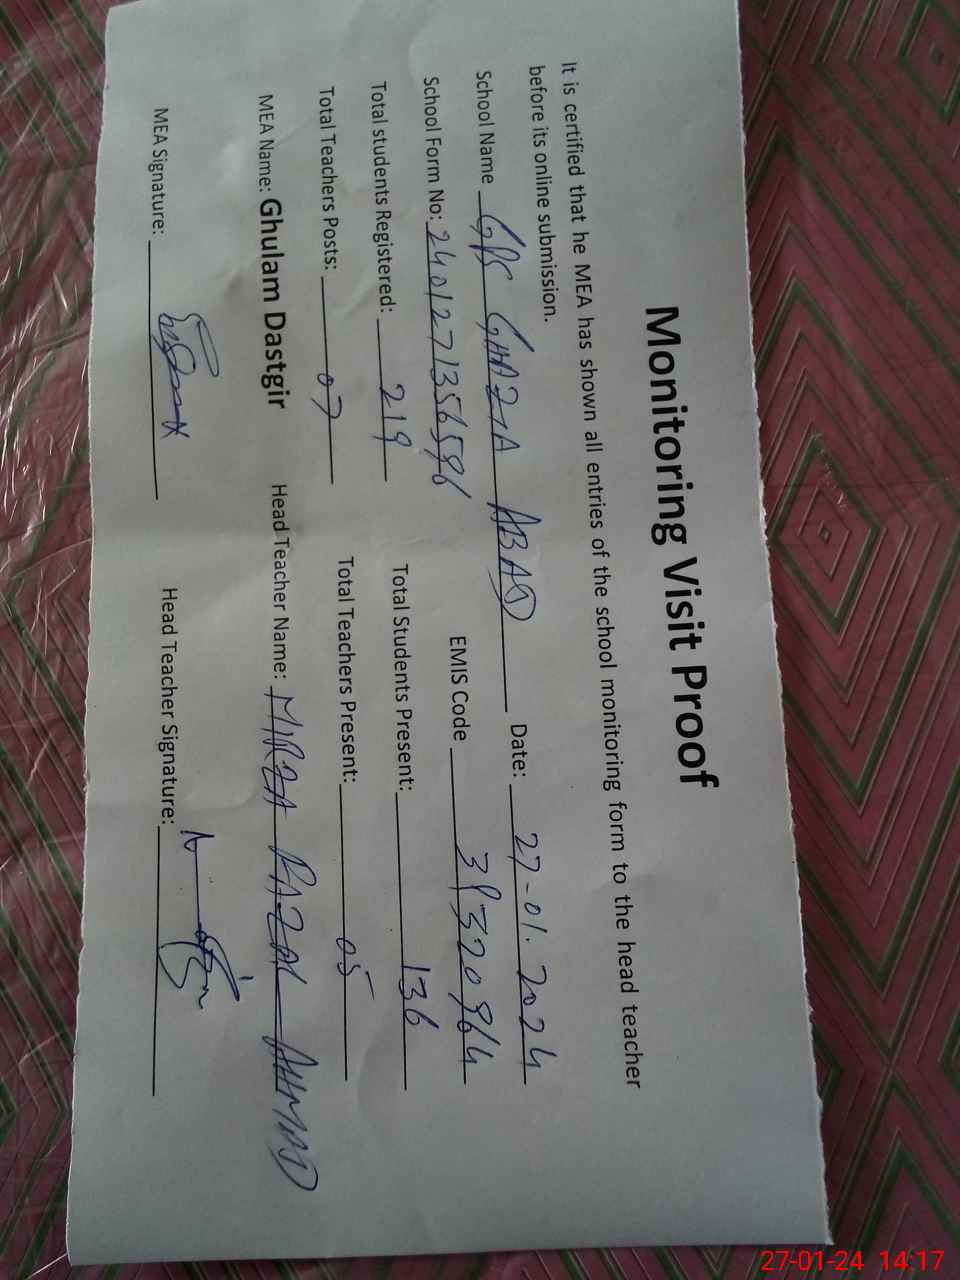 Monitoring Visit Proof
It is certified that he MEA has shown all entries of the school monitoring form to the head teacher
before its online submission.
School Name GPS GHAZIA ABAD Date: 27-01-2024
School Form No: 2401271356596 EMIS Code
Total students Registered: 219 Total Students Present: 136
Total Teachers Posts: 07 Total Teachers Present: 05
MEA Name: Ghulam Dastgir Head Teacher Name: MIRZA FAZAL AHMAD
MEA Signature: Head Teacher Signature:
27-01-24 14:17